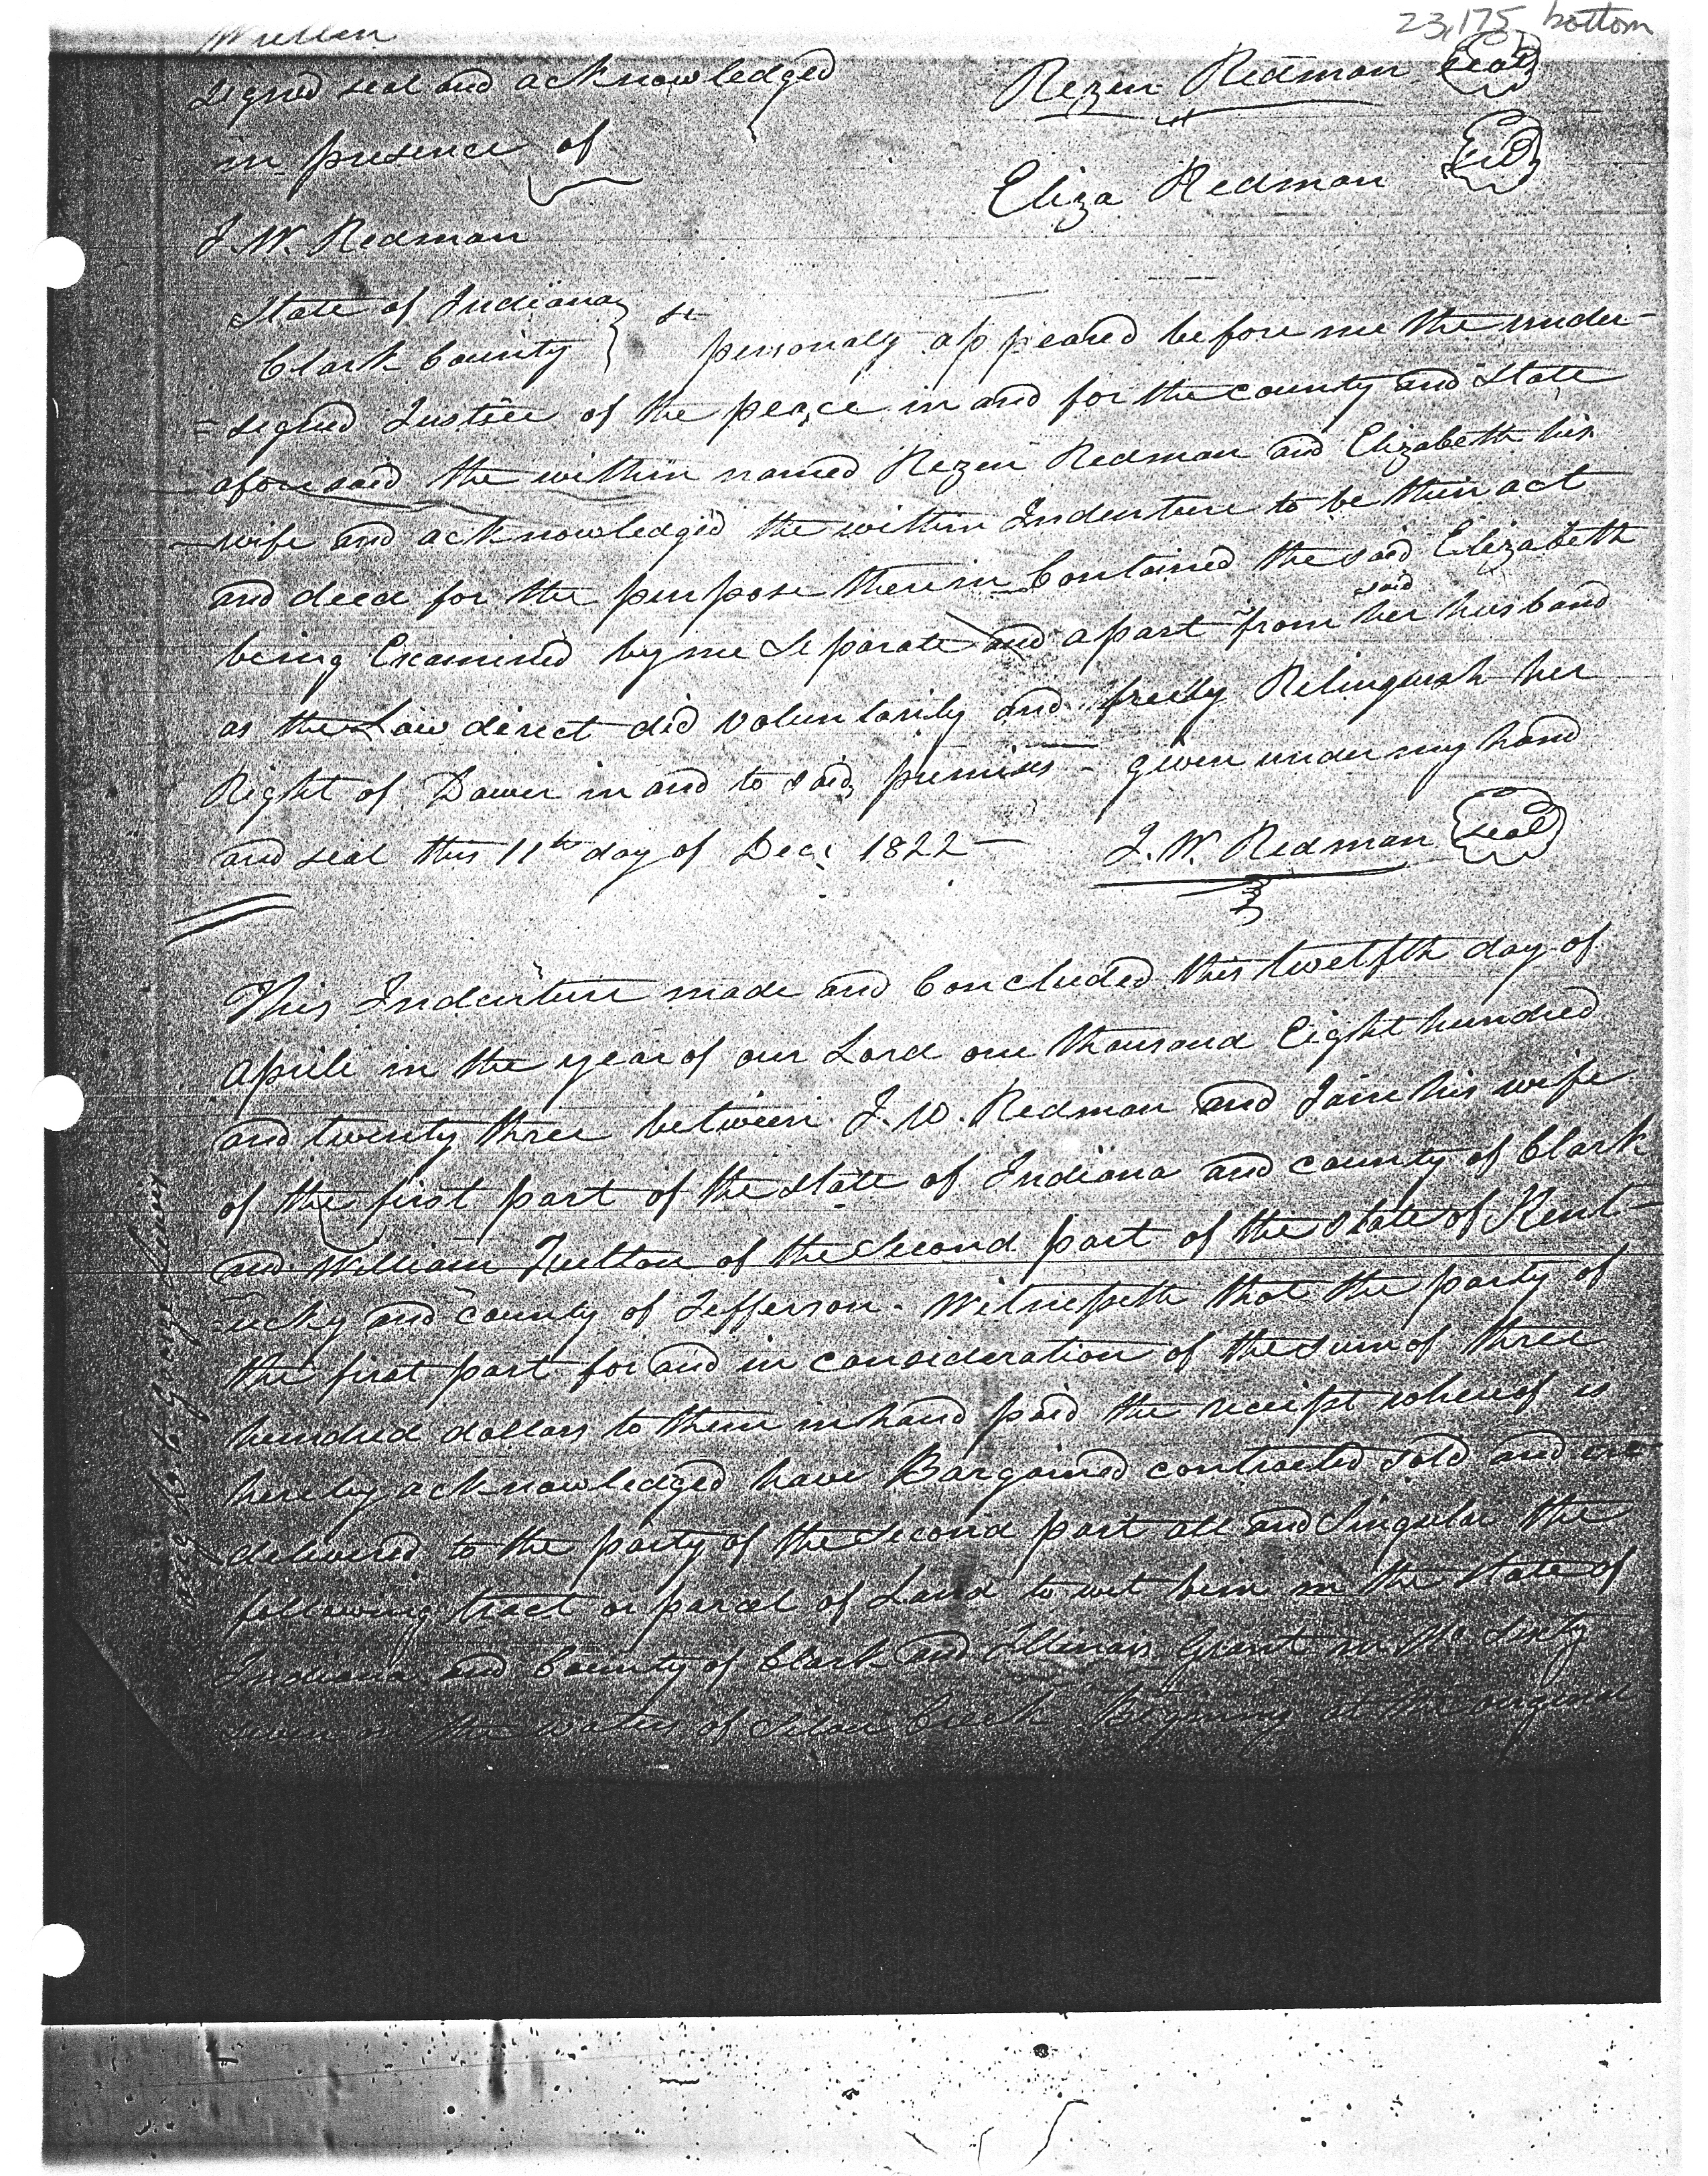 23,175 bottom
Written
signed seal and acknowledged Rezen Redman seal
in presence of
Eliza Redman seal
J. W. Redman
State of Indiana
Clark County } st personaly appeared before me the under-
=signed Justice of the peace in and for the county and State
afore said the within named Rezen Redman and Elizabeth his
wife and acknowledged the within Indenture to be their act
and deed for the purpose therein Contained the said Elizabeth
being Examined by me Separate and apart from her said husband
as the Law direct did voluntarily and freely Relinquish her
Right of Dower in and to said premises - given under my hand
and seal this 11th day of Dec. 1822 - J. W. Redman seal
This Indenture made and Concluded this twelfth day of
Aprile in the year of our Lord one thousand Eight hundred
and twenty three between J. W. Redman and Jain his wife
of the first part of the state of Indiana and county of Clark
and William of the Second part of the state of Kent-
=ucky and county of Jefferson. Witnesseth that the party of
the first part for and in consideration of the sum of three
hundred dollars to them in hand paid the receipt whereof is
hereby acknowledged have Bargained contracted sold and
delivered to the party of the Second part all and Singular the
following tract or parcel of Land to wit in the State of
Indiana and County of Clark and Illinois Grant in No. Sixty
seven on the waters of Creek at the original